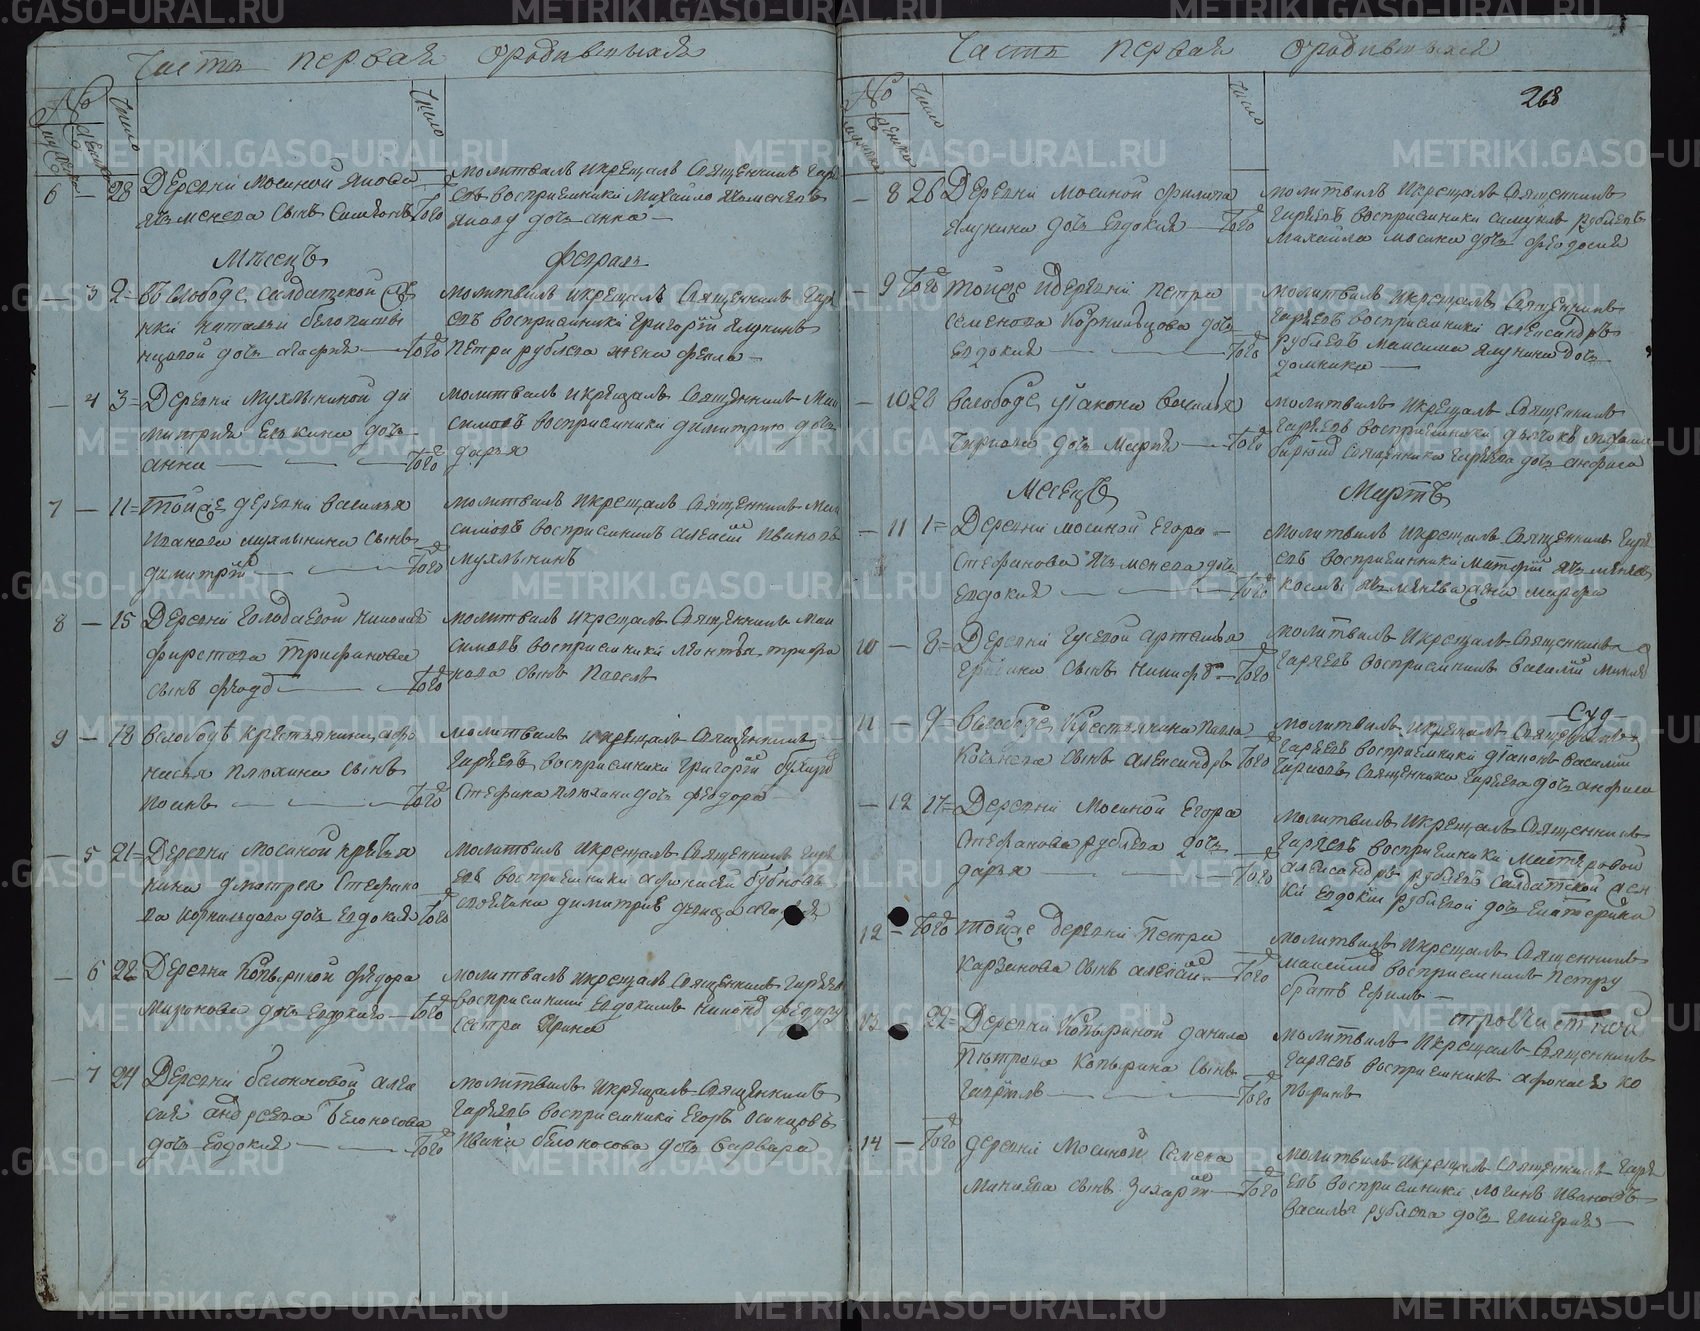 Часть первая о родившихся
№
мужеска
женска
Число
Число
6 — 28 Деревни Мосиной Якова
Изменева сынъ Симеонъ того
молитвилъ и крещалъ священникъ Гаря
евъ восприемники Михайло Изменевъ
Якову дочь Анна —
Месецъ Февраль
— 3 2 въ слободе салдатской
Натальи Белопашен
нцовой дочь Агафия — того
молитвилъ и крещалъ священникъ Гаря
евъ восприемники Григорий Ялунинъ
Петра Рублева жена Фекла —
— 4 3 Деревни Мухлыниной Ди
митрия Елькина дочь
Анна — — — того
молитвилъ и крещалъ священникъ Мак
симовъ восприемники Димитрию дочь
Дарья
7 — 11 той же деревни Василья
Иванова Мухлынина сынъ
Димитрий — того
молитвилъ и крещалъ священникъ Мак
симовъ восприемникъ Алексей Ивановъ
Мухлынинъ
8 — 15 Деревни Голодаевой Николай
Трифанова
сынъ Федоръ — того
молитвилъ и крещалъ священникъ Мак
симовъ восприемники Леонтья Трифа
нова сынъ Павелъ
9 — 18 в слободѣ крестьянина Афо
насья Плюхина сынъ
— — того
молитвилъ и крещалъ священникъ
Гаряевъ восприемники Григорий
Стефана Плюхина дочь Федора
— 5 21 Деревни Мосиной крестья
нина Дмитрея Стефано
ва Корнильцова дочь Евдокия того
молитвилъ и крещалъ священникъ Гаря
евъ восприемники Афонасей Бубновъ
Димитрия девица Агафия
— 6 22 Деревни Копыриной Федора
Миронова дочь Евдокия — того
молитвилъ и крещалъ священникъ Гаряев
восприемники Евдокимъ Федору
сестра Ирина
— 7 24 Деревни Белоносовой Алек
сея Андреева Белоносова
дочь Евдокия — того
молитвилъ и крещалъ священникъ
Гаряевъ восприемники Егоръ Осинцовъ
Ивана Белоносова дочь Варвара
Часть первая о родившихся
268
№
мужеска
женска
Число
Число
— 8 26 Деревни Мосиной Филипа
Ялунина дочь Евдокия — того
молитвилъ и крещалъ священникъ
Гаряевъ восприемники Самуилъ Рублевъ
Михаила Мосина дочь Феодосия
— 9 того той же деревни Петра
Семенова Корнильцова дочь
Евдокия — — того
молитвилъ и крещалъ священникъ
Гаряевъ восприемники Александръ
Рублевъ Максима Ялунина дочь
Домника —
— 10 28 в слободе у диакона Василья
Чиркова дочь Марфа — того
молитвилъ и крещалъ священникъ
Гаряевъ восприемники дьячокъ
священника Гаряева дочь Анфиса
Месецъ Мартъ
— 11 1 Деревни Мосиной Егора
Стефанова Изменева дочь
Евдокия — — того
молитвилъ и крещалъ священникъ Гаря
евъ восприемники Матфей Изменевъ
Космы Изменева жена Марфа
10 — 8 Деревни Гусевой Артемья
сынъ Никифоръ — того
молитвилъ и крещалъ священникъ
Гаряевъ восприемникъ Василий
11 — 9 в слободе крестьянина Павла
сынъ Александръ того
молитвилъ и крещалъ священникъ
Гаряевъ восприемники диаконъ Василий
Чирковъ священника Гаряева дочь Анфиса
— 12 17 Деревни Мосиной Егора
Стефанова Рублева дочь
Дарья — — того
молитвилъ и крещалъ священникъ
Гаряевъ восприемники мастеровой
Александръ Рублевъ салдатской жен
ки Евдокии Рублевой дочь Екатерина
12 — того той же деревни Петра
Карзанова сынъ Алексей — того
молитвилъ и крещалъ священникъ
восприемникъ Петру
братъ Ефимъ —
13 22 Деревни Копыриной Данила
Петрова Копырина сынъ
Гавриилъ — того
молитвилъ и крещалъ священникъ
Гаряевъ восприемникъ Афонасей Ко
пыринъ
14 — того деревни Мосиной Семена
Минеева сынъ Захарий — того
молитвилъ и крещалъ священникъ Гаря
евъ восприемники Логинъ Ивановъ
Василья Рублева дочь Гликерия —
METRIKI.GASO-URAL.RU